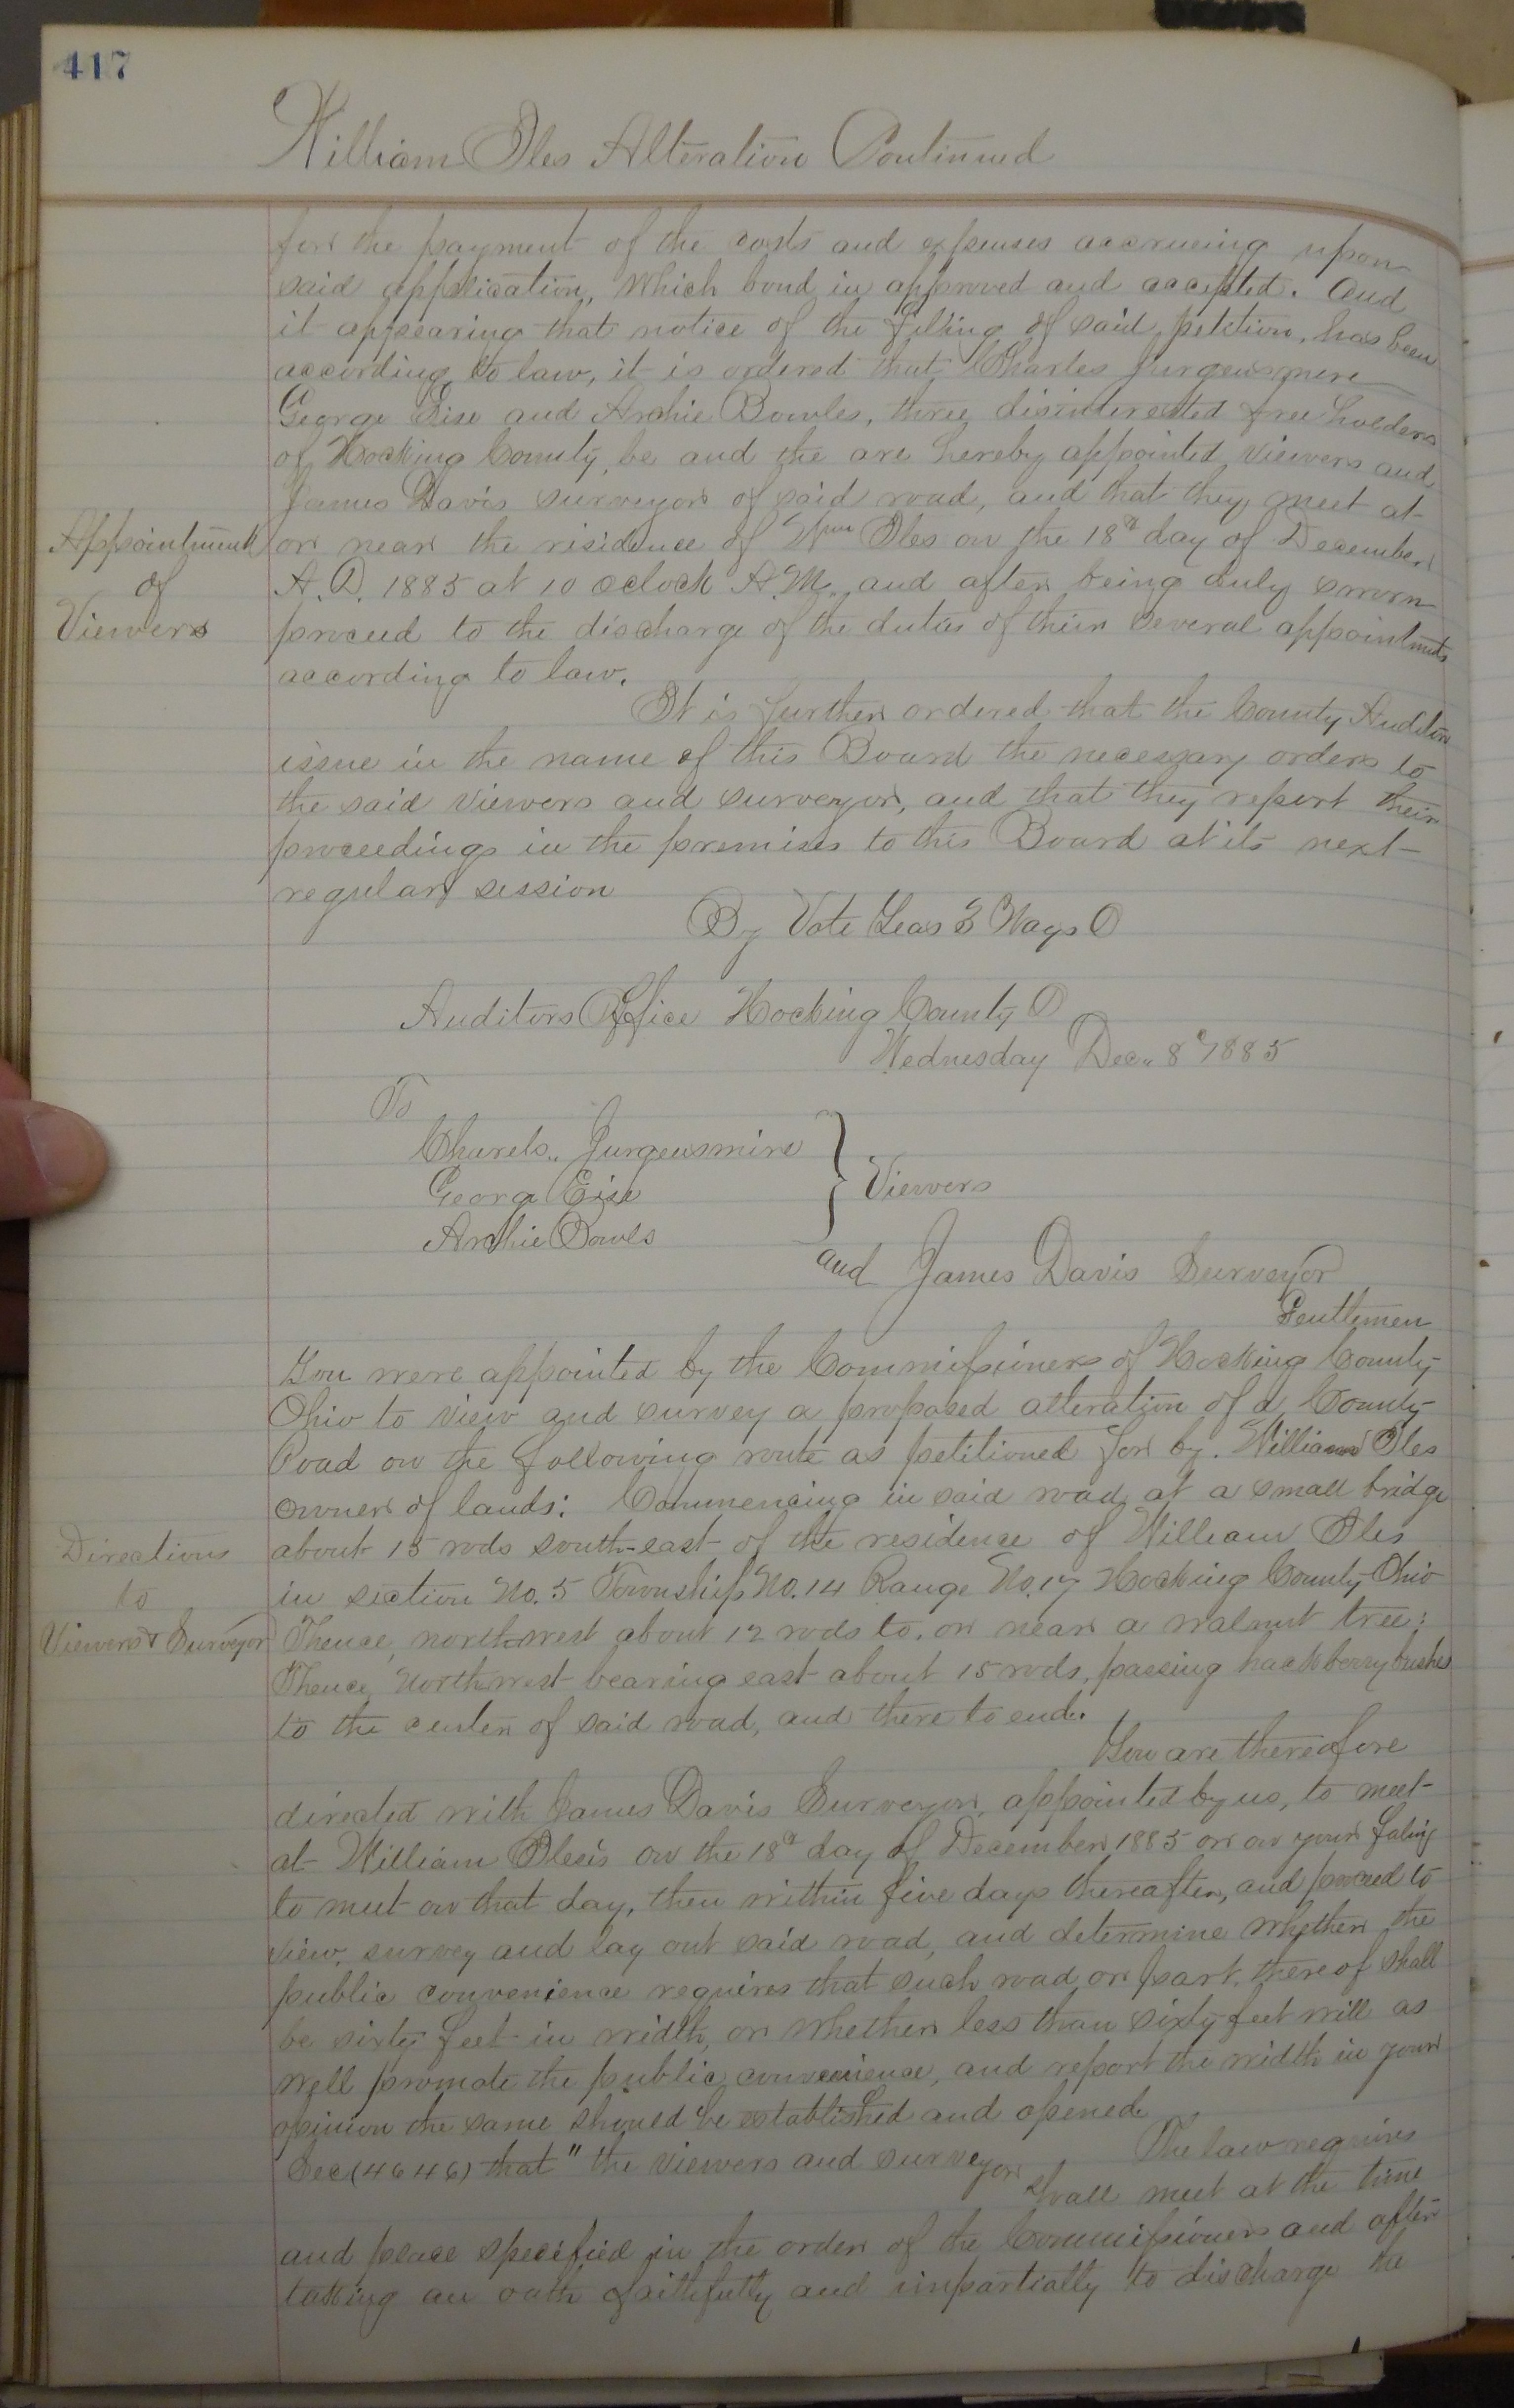 417
William Iles Alteration Continued
for the payment of the costs and expenses accrueing upon
said application, Which bond is approved and accepted. And
it appearing that notice of the filing of said petition, has been
according to law, it is ordered that Charles Jurgensmire
George Eise and Archie Bowles, three disinterested free holders
of Hocking County, be and the are hereby appointed Viewers and
James Davis surveyor of said road, and that they meet at
Appointment
of
Viewers
or near the risidence of Wm Iles on the 18th day of December
A.D. 1885 at 10 oclock A.M. and after being duly sworn
proceed to the discharge of the duties of their several appointments
according to law.
It is further ordered that the County Auditor
issue in the name of this Board the necessary orders to
the said viewers and surveyor, and that they report their
proceedings in the premises to this Board at its next
regular session
By Vote Yeas 3 Nays 0
Auditors Office Hocking County O
Wednesday Dec. 8th 1885
To
Charels. Jurgensmire
Georg Eise
Archie Bowls
} Viewers
and James Davis Surveyor
Gentlemen
You were appointed by the Commissioners of Hocking County
Ohio to view and survey a proposed alteration of a County
Road on the following route as petitioned for by. William Iles
owner of lands: Commencing in said road at a small bridge
Directions
to
Viewers & Surveyor
about 15 rods south-east of the residence of William Iles
in section No. 5 Township No. 14 Range No. 17 Hocking County Ohio
Thence, north-west about 12 rods to, or near a walnut tree:
Thence Northwest bearing east about 15 rods, passing hackberry bushes
to the center of said road, and there to end.
You are therefore
directed with James Davis Surveyor, appointed by us, to meet
at William Iles's on the 18th day of December 1885 or on your faling
to meet on that day, then within five days thereafter, and proceed to
view, survey and lay out said road, and determine whether the
public convenience requires that such road or part thereof shall
be sixty feet in width, or whether less than sixty feet will as
well promote the public convenience, and report the width in your
opinion the same should be established and opened.
The law requires
Sec (4646) that " the viewers and surveyor shall meet at the time
and place specified in the order of the Commissioners and after
taking an oath faithfully and impartially to discharge the